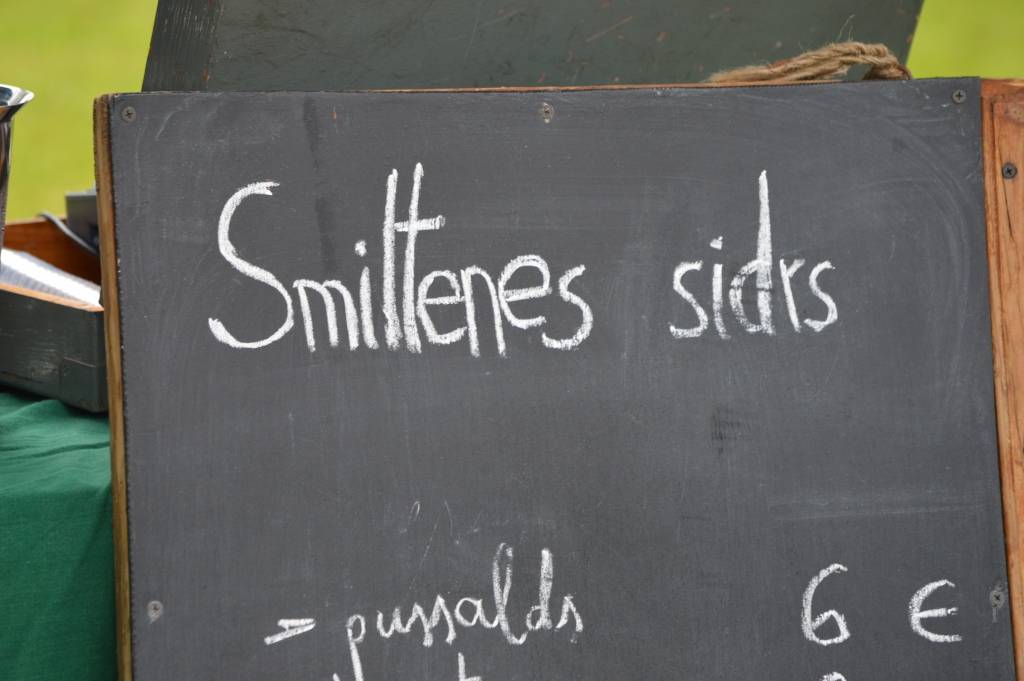 Smiltenes sidrs
> pussalds 6 €